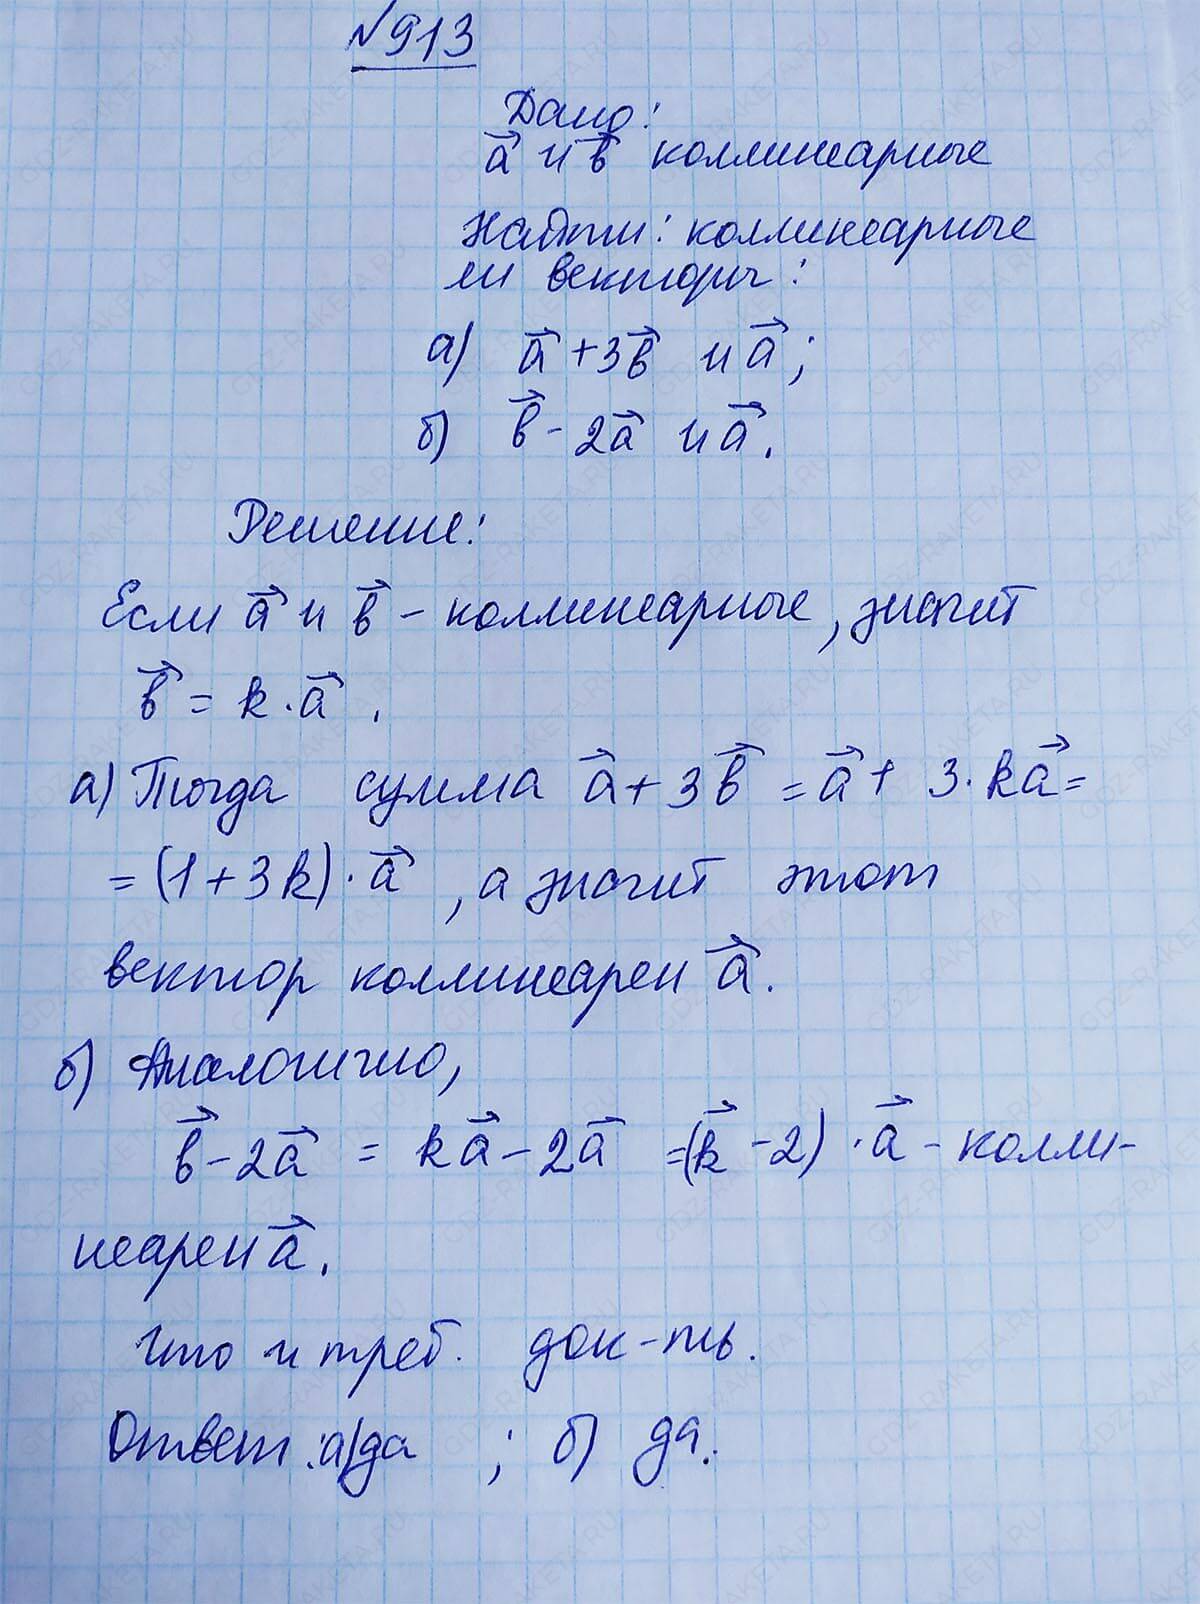 №913
Дано:
a⃗ и в⃗ коллинеарные
Найти: коллинеарные
ли векторы:
а) a⃗ + 3в⃗ и a⃗;
б) в⃗ - 2a⃗ и a⃗.
Решение:
Если a⃗ и в⃗ - коллинеарные, значит
в⃗ = k · a⃗.
а) Тогда сумма a⃗ + 3в⃗ = a⃗ + 3·ka⃗ =
= (1 + 3k) · a⃗, а значит этот
вектор коллинеарен a⃗.
б) Аналогично,
в⃗ - 2a⃗ = ka⃗ - 2a⃗ = (k⃗ - 2) · a⃗ - колли-
неарен a⃗.
Что и треб. док-ть.
Ответ: а) да ; б) да.
GDZ-RAKETA.RU